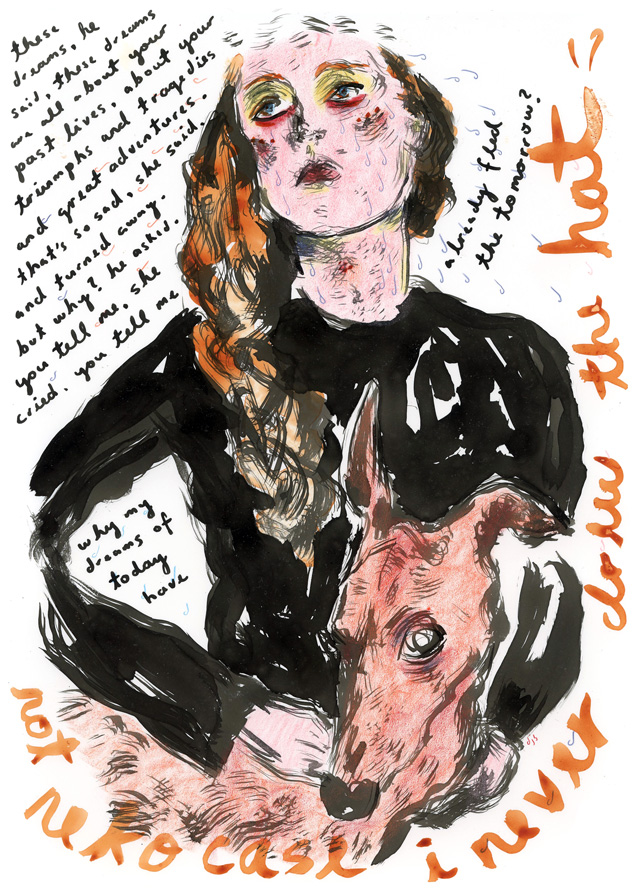 these
dreams, he
said, these dreams
are all about your
past lives, about your
triumphs and tragedies
and great adventures.
that's so sad, she said,
and turned away.
but why? he asked.
you tell me, she
cried. you tell me
why my
dreams of
today
have
already fled
the tomorrow?
not neko case i never draw the hat =)